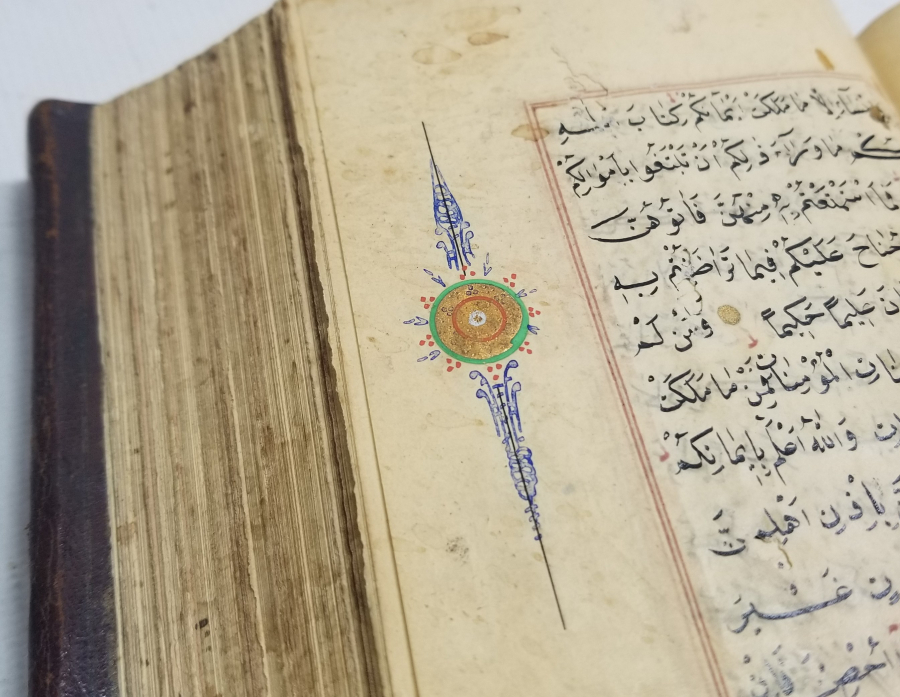 النسآء الا ما ملكت ايمانكم كتاب الله
عليكم ما ورآء ذلكم ان تبتغوا باموالكم
فما استمتعتم به منهن فآتوهن
جناح عليكم فيما تراضيتم به
ان عليما حكيما ومن لم
المؤمنات فمن ما ملكت
والله اعلم بايمانكم
باذن اهلهن
غير
احصن فان